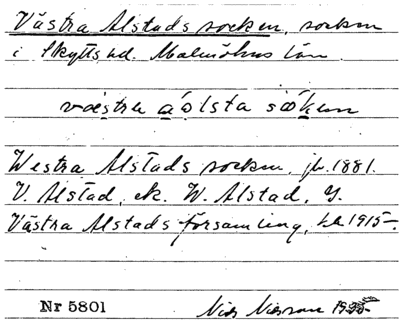 Västra Alstads socken, socken
i Skytts hd. Malmöhus län.
væstra aolsta sokan
Westra Alstads socken, jb. 1881.
V. Alstad, ek. W. Alstad, G.
Västra Alstads församling, 1915-.
Nr 5801 Nils Nilsson